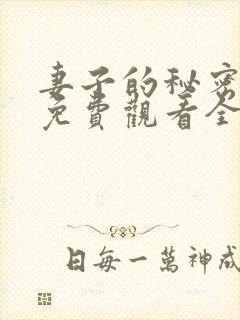 妻子的秘密
免費觀看全
日每一萬神成